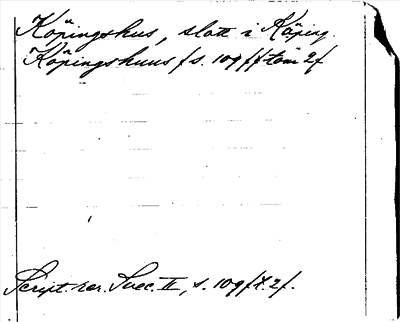 Köpingshus, slott i Köping.
Köpingshuus /s. 109/ / tom 2/
Script. rer. Svec. II, s. 109/t. 2/.